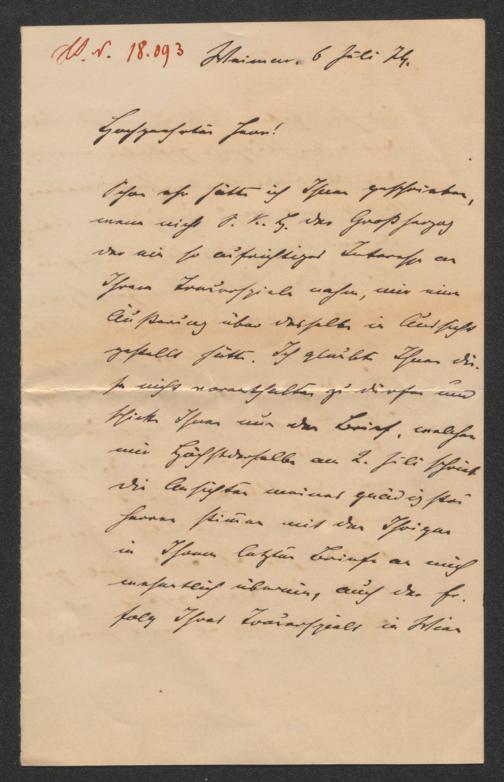 18.093
Weimar. 6 Juli 74.
Hochgeehrter Herr!
Schon eher hätte ich Ihnen geschrieben,
wenn nicht S. K. H. der Großherzog
der ein so aufrichtiges Interesse an
Ihrem Trauerspiele nahm, mir eine
Äußerung über dasselbe in Aussicht
gestellt hätte. Ich glaubte Ihnen die-
se nicht vorenthalten zu dürfen und
schicke Ihnen nun den Brief, welchen
mir Höchstderselbe am 2. Juli schrieb
die Ansichten meines gnädigsten
Herren stimmen mit den Ihrigen
in Ihrem letzten Briefe an mich
wesentlich überein, auch der Er-
folg Ihres Trauerspiels in Wien